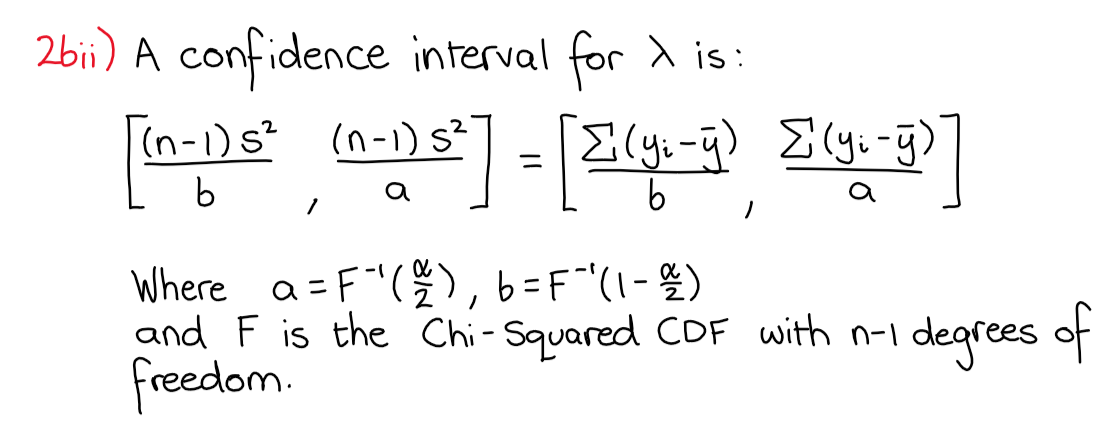 2bii) A confidence interval for λ is:
[(n-1)S²/b, (n-1)S²/a] = [Σ(yᵢ-ȳ)/b, Σ(yᵢ-ȳ)/a]
Where a = F⁻¹(α/2), b = F⁻¹(1-α/2)
and F is the Chi-Squared CDF with n-1 degrees of
freedom.